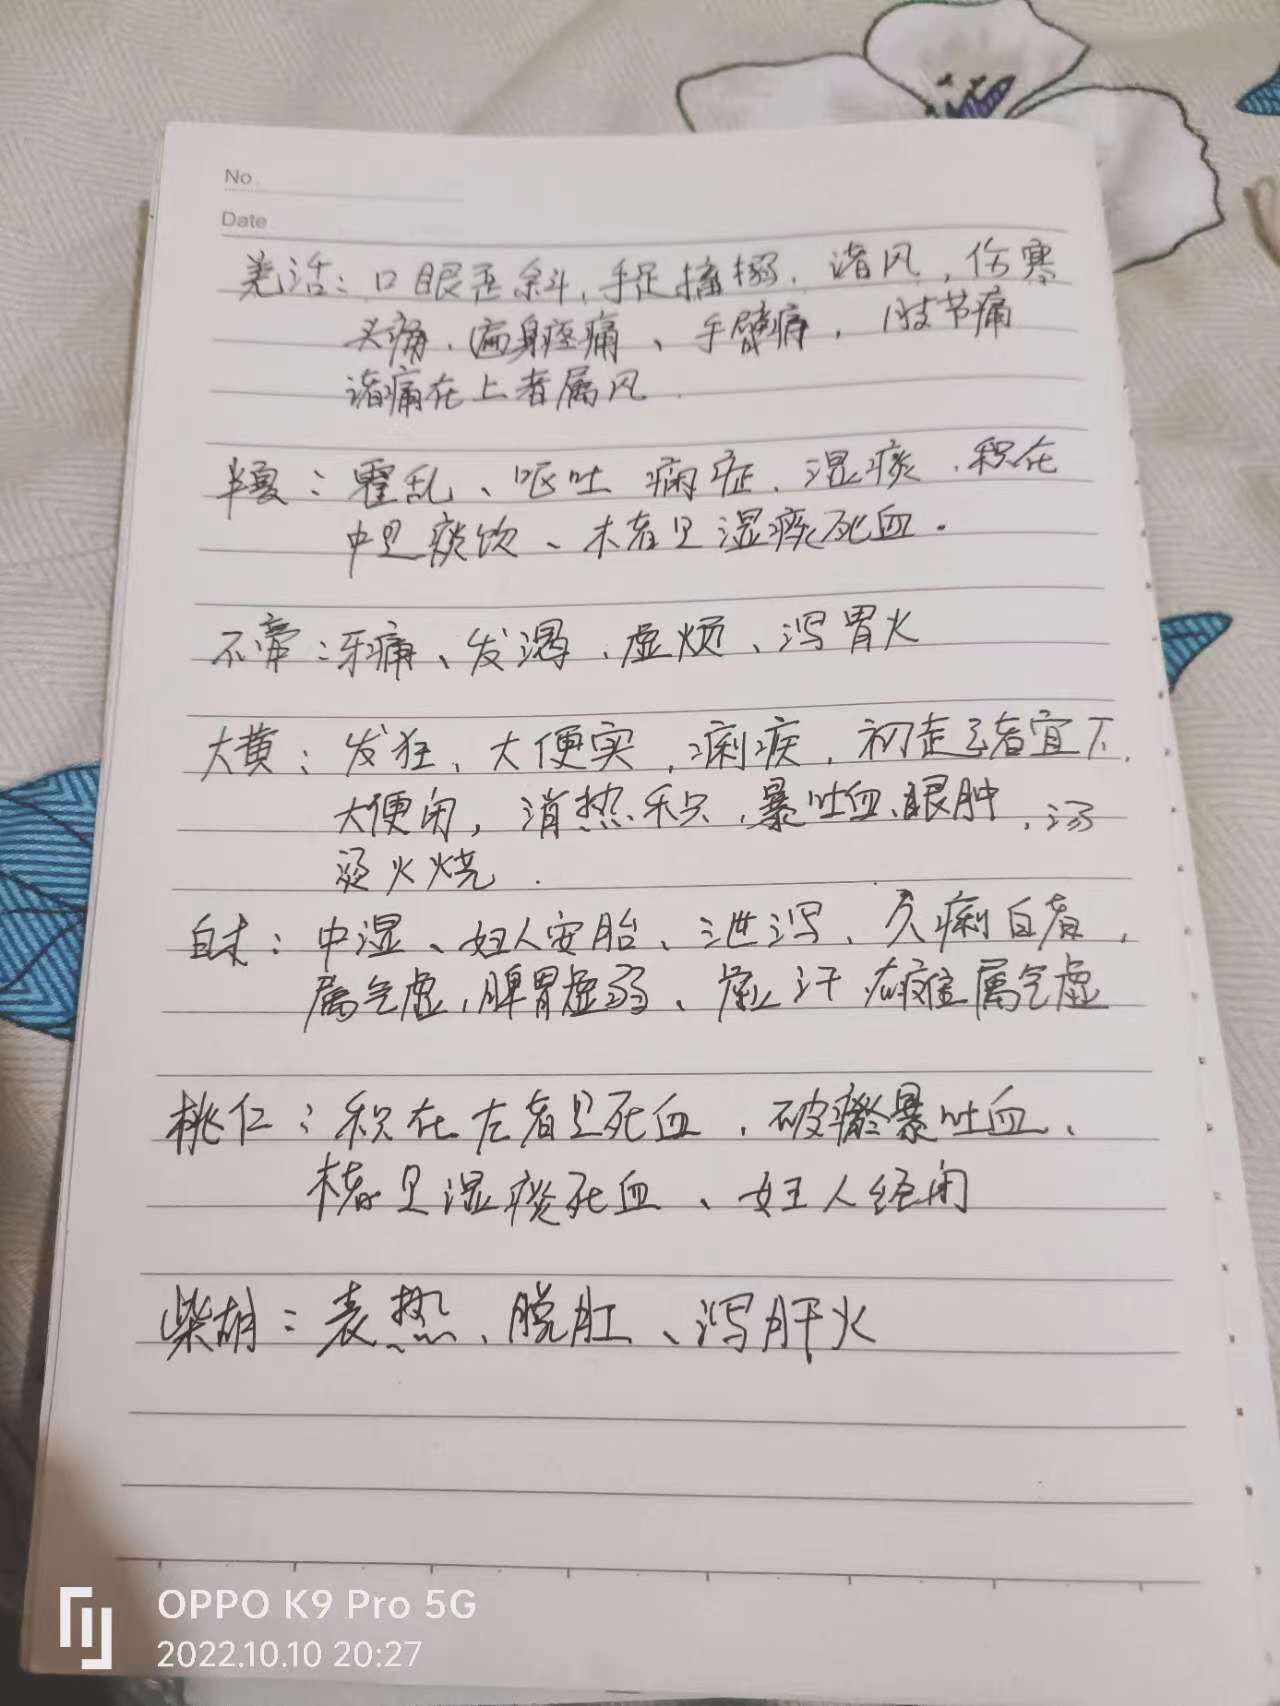 No.
Date
羌活：口眼歪斜，手足搐搦，诸风，伤寒
头痛、遍身痊痛、手臂痛，肢节痛
诸痛在上者属风
半夏：霍乱、呕吐 痫症、湿痰、积在
中是痰饮、木者是湿痰死血.
石膏：牙痛、发渴、虚烦、泻胃火
大黄：发狂、大便实，痢疾，初起者宜下
大便闭，消热积，暴吐血、眼肿，汤
烫火烧.
白术：中湿、妇人安胎、泄泻、久痢白者，
属气虚，脾胃虚弱、止汗 属气虚
桃仁：积在左者是死血，破癥暴吐血、
木者是湿痰死血、妇人经闭
柴胡：表热、脱肛、泻肝火
OPPO K9 Pro 5G
2022.10.10 20:27